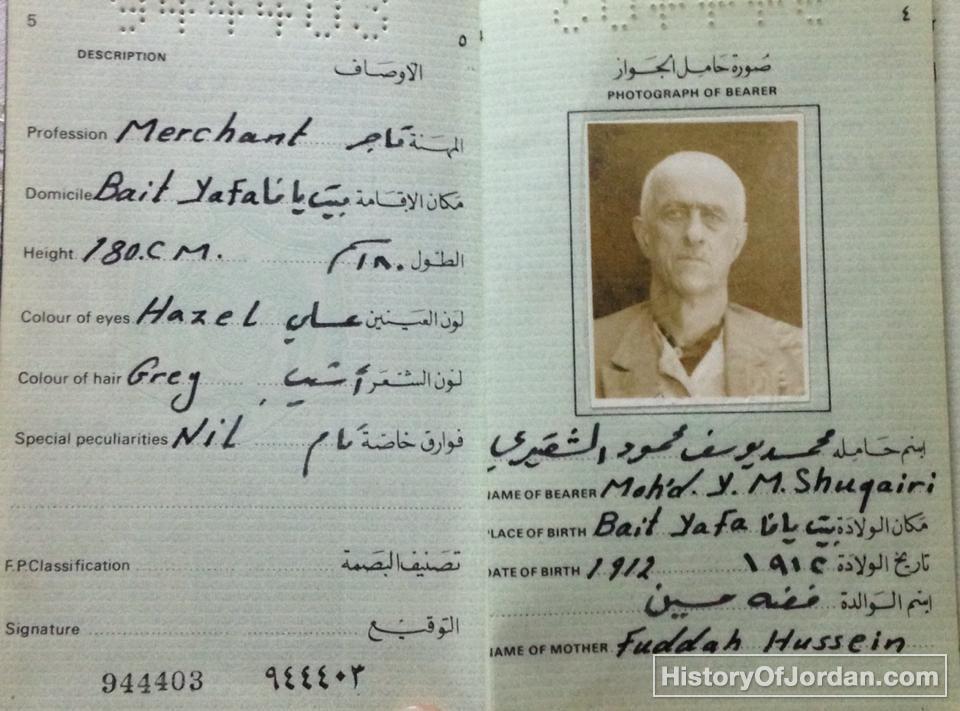 5
٥
DESCRIPTION الاوصاف
Profession Merchant المهنة تاجر
Domicile Bait Yafa مكان الاقامة بيت يافا
Height 180.C M. الطول ١٨٠
Colour of eyes Hazel لون العينين عسلي
Colour of hair Grey لون الشعر أشيب
Special peculiarities Nil فوارق خاصة
F.P.Classification تصنيف البصمة
Signature التوقيع
944403 ٩٤٤٤٠٣
٤
صورة حامل الجواز
PHOTOGRAPH OF BEARER
اسم حامله محمد يوسف محمود الشقيري
NAME OF BEARER Moh'd. Y. M. Shuqairi
PLACE OF BIRTH Bait Yafa مكان الولادة بيت يافا
DATE OF BIRTH 1912 تاريخ الولادة ١٩١٢
اسم الوالدة فضه حسين
NAME OF MOTHER Fuddah Hussein
HistoryOfJordan.com